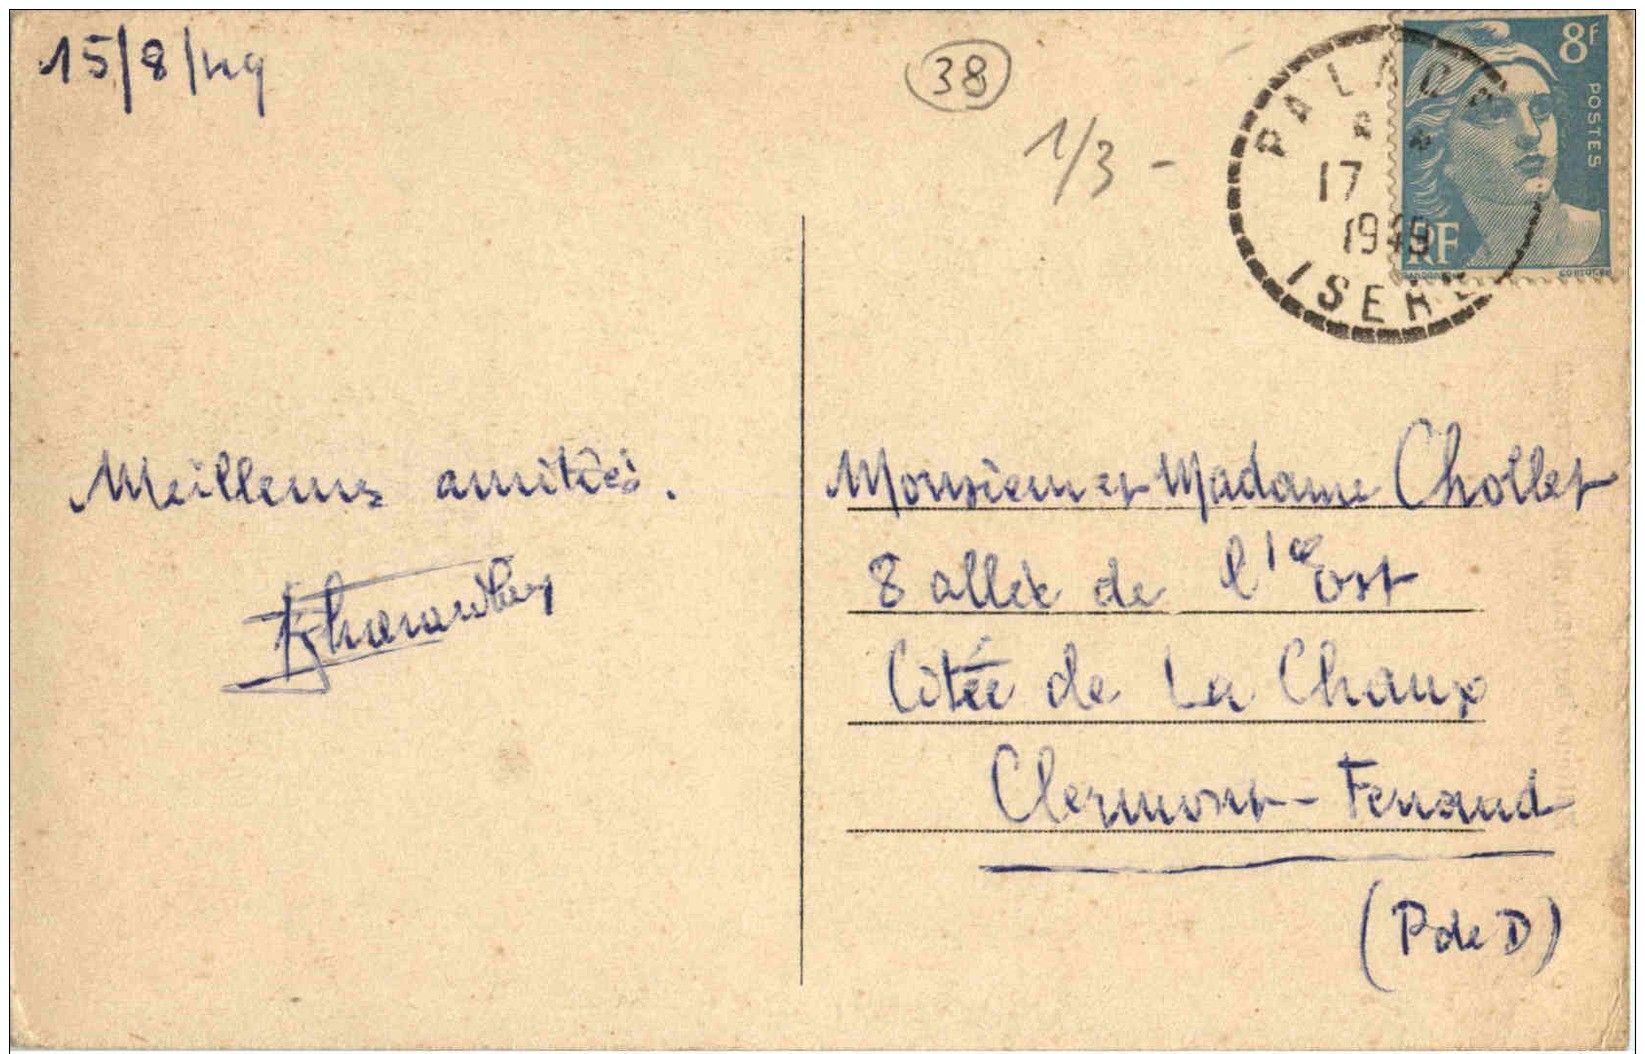 15/8/49
38
1/3 -
17
1949
ISERE
8F
POSTES
RF
Meilleures amitiés.
Monsieur et Madame Chollet
8 allée de l'Est
Citée de La Chaux
Clermont-Ferrand
(P de D)